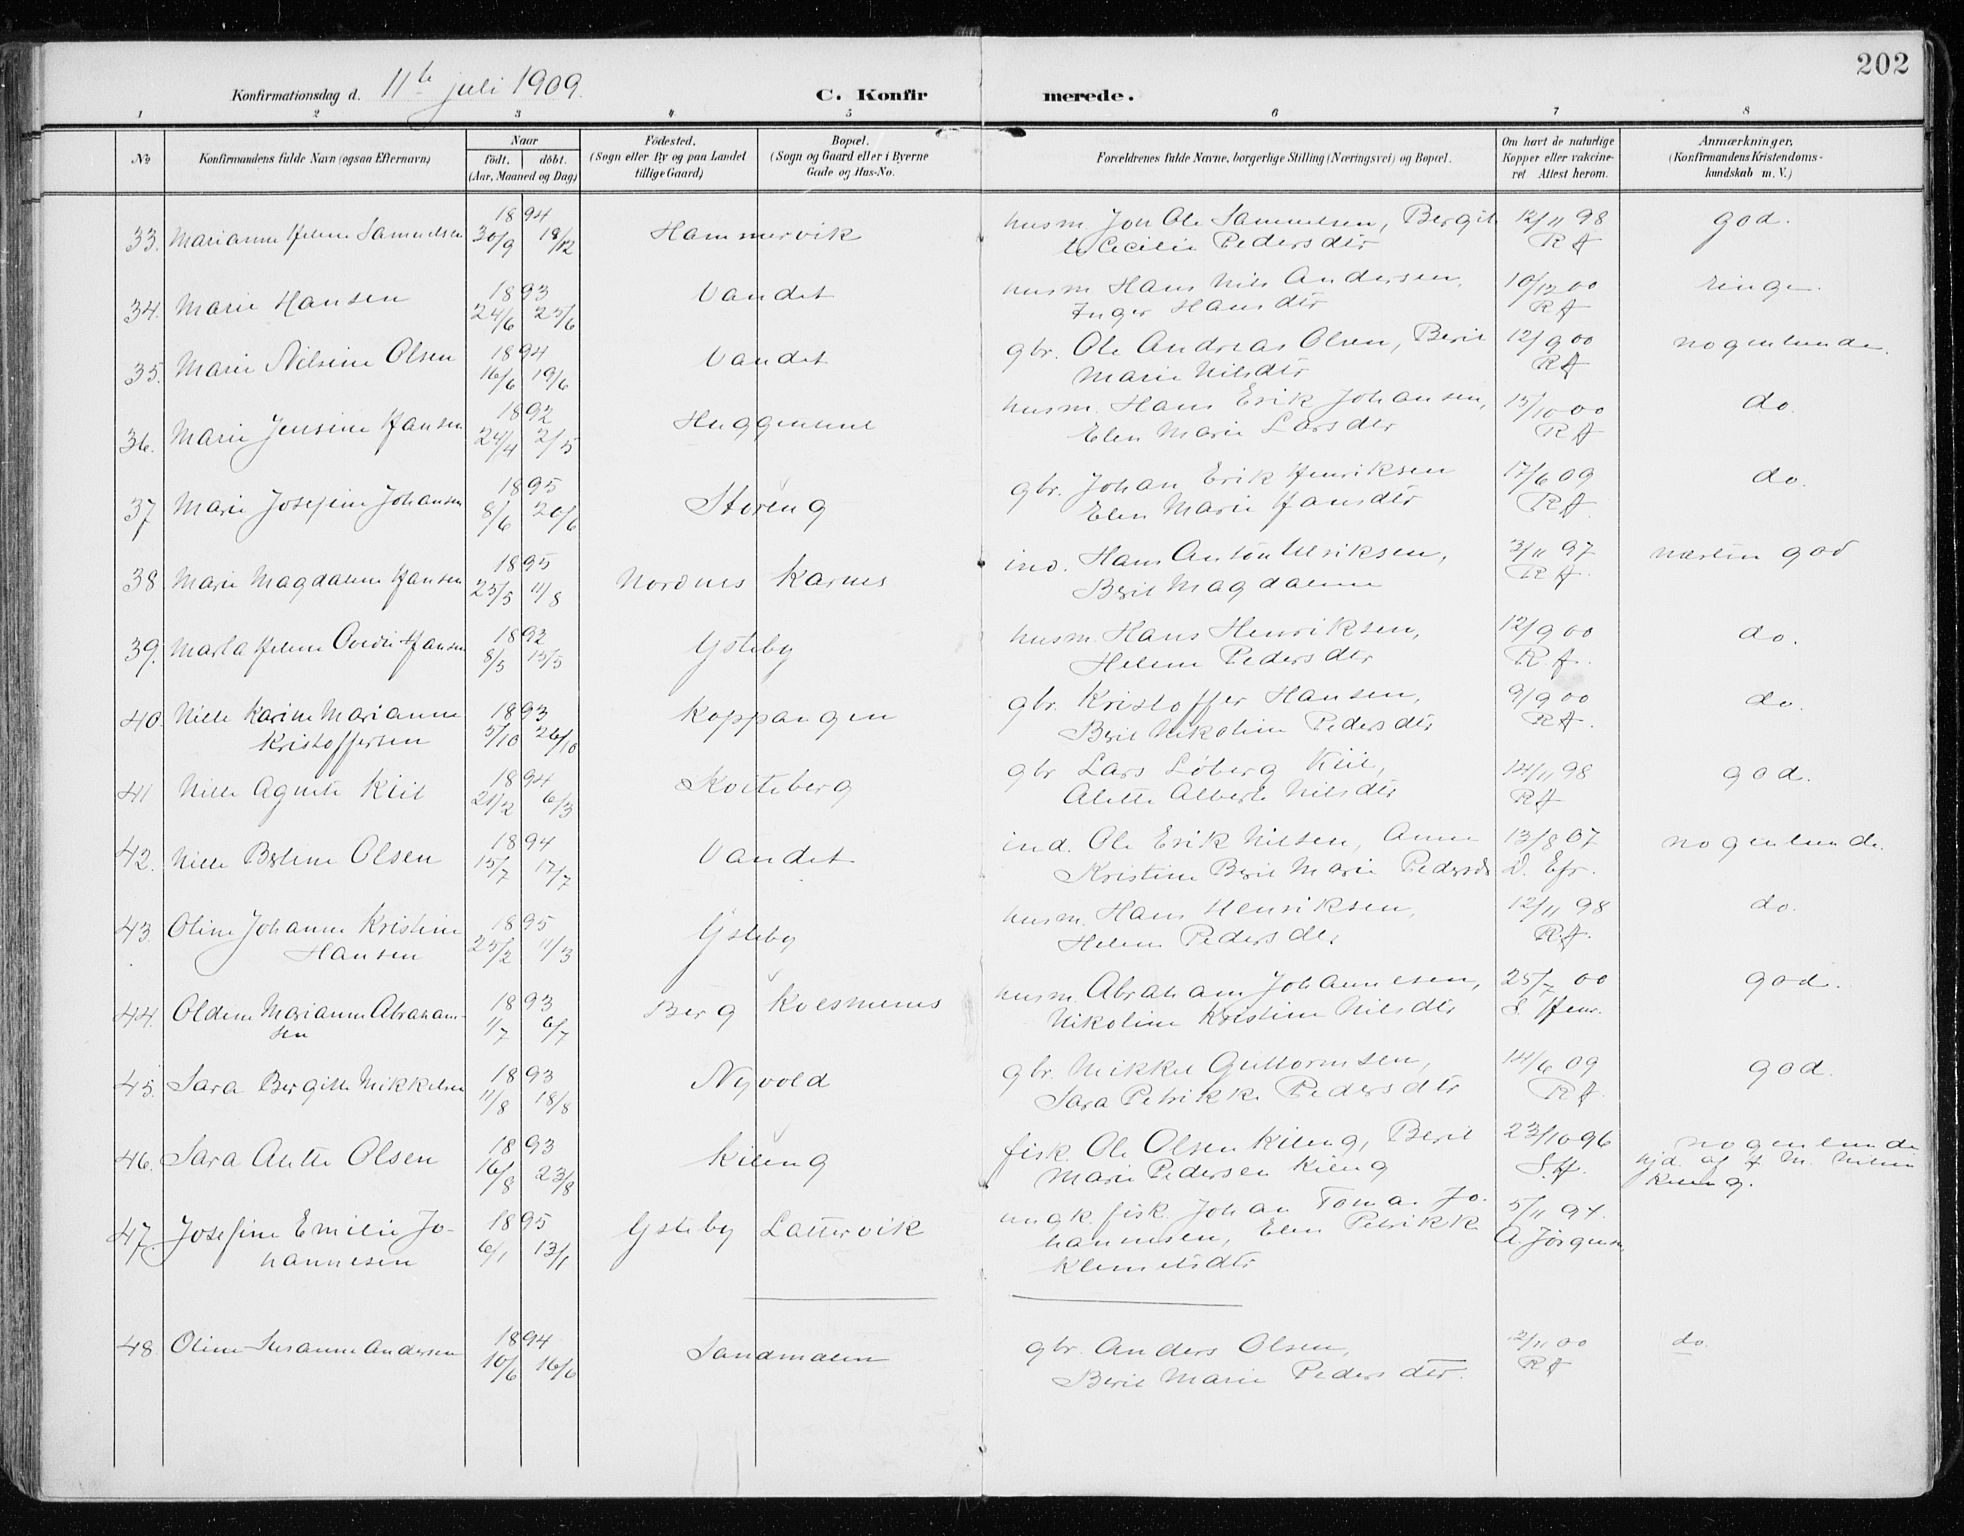 202
Konfirmationsdag d. 11te juli 1909.
C. Konfirmerede.
1 2 3 4 5 6 7 8
No
Konfirmandens fulde Navn (ogsaa Efternavn)
Naar
født. døbt.
(Aar, Maaned og Dag)
Fødested.
(Sogn eller By og paa Landet
tillige Gaard)
Bopæl.
(Sogn og Gaard eller i Byerne
Gade og Hus-No.
Forældrenes fulde Navne, borgerlige Stilling (Næringsvei) og Bopæl.
Om havt de naturlige
Kopper eller vakcine-
ret Attest herom.
Anmærkninger,
(Konfirmandens Kristendoms-
kundskab m. V.)
33. Marianne Helene Samuelsen 1894 30/9 18/12 Hammervik husm. Joh Ole Samuelsen, Bergit 12/11 98 god.
te Cecilie Pedersdtr R A
34. Marie Hansen 1893 24/6 25/6 Vandet husm. Hans Nils Andersen, 10/12 00 ringe.
Inger Hansdtr R A
35. Marie Nilsine Olsen 1894 16/6 19/6 Vandet gbr. Ole Andreas Olsen, Berit 12/9 00 nogenlunde.
Marie Nilsdtr R A
36. Marie Jensine Hansen 1892 24/4 2/5 Huggenme husm. Hans Erik Johansen, 15/10 00 do.
Elen Marie Larsdtr R A
37 Marie Josefine Johansen 1895 8/6 20/6 Storeng gbr. Johan Erik Henriksen 17/6 09 do.
Elen Marie Hansdtr R A
38 Marie Magdalene Hansen 1895 25/5 11/8 Nordnes Karnes ind. Hans Anton Ulriksen, 3/11 97 næsten god
Berit Magdalene R A.
39. Marta Helene Ovidie Hansen 1892 8/5 15/5 Ysteby husm. Hans Henriksen, 12/9 00 do.
Helene Pedersdtr R. A.
40. Nille Karine Marianne 1893 5/10 26/10 Koppangen gbr. Kristoffer Hansen, 9/9 00 do.
Kristoffersen Berit Nikoline Pedersdtr R A.
41 Nille Agnete Kiil 1894 21/2 6/3 Kviteberg gbr Lars Løberg Kiil, 14/11 98 god.
Alette Alberte Nilsdtr R A
42. Nille Berline Olsen 1894 15/7 17/7 Vandet ind. Ole Erik Nilsen, Anne 13/8 07 nogenlunde.
Kristine Berit Marie Pedersd D. Efr.
43. Oline Johanne Kristine 1895 25/2 11/3 Ysteby husm. Hans Henriksen, 12/11 98 do.
Hansen Helene Pedersdtr R.A.
44. Oldine Marianne Abraham- 1893 1/7 6/7 Berg Koesmenes husm. Abraham Johannesen, 25/7 00 god.
sen Nikoline Kristine Nilsdtr S. Henr.
45. Sara Bergitte Mikkelsen 1893 11/8 18/8 Nyvold gbr. Mikkel Guttormsen, 14/6 09 god.
Sara Petrikke Pedersdtr R A.
46. Sara Anette Olsen 1893 16/8 23/8 Kileng fisk. Ole Olsen Kileng, Berit 23/10 96 nogenlunde
Marie Pedersen Kileng S. H. hjd. af J. M. Nilsen
Kileng.
47. Josefine Emilie Jo- 1895 6/1 13/1 Ysteby Lattervik ungk. fisk. Johan Tomas Jo- 5/11 97.
hannesen hannesen, Elen Petrikke A. Jørgensen
Klemetsdtr
48. Oline Susanne Andersen 1894 10/6 16/6 Sandmælen gbr. Anders Olsen, 12/11 00 do.
Berit Marie Pedersdtr. R A